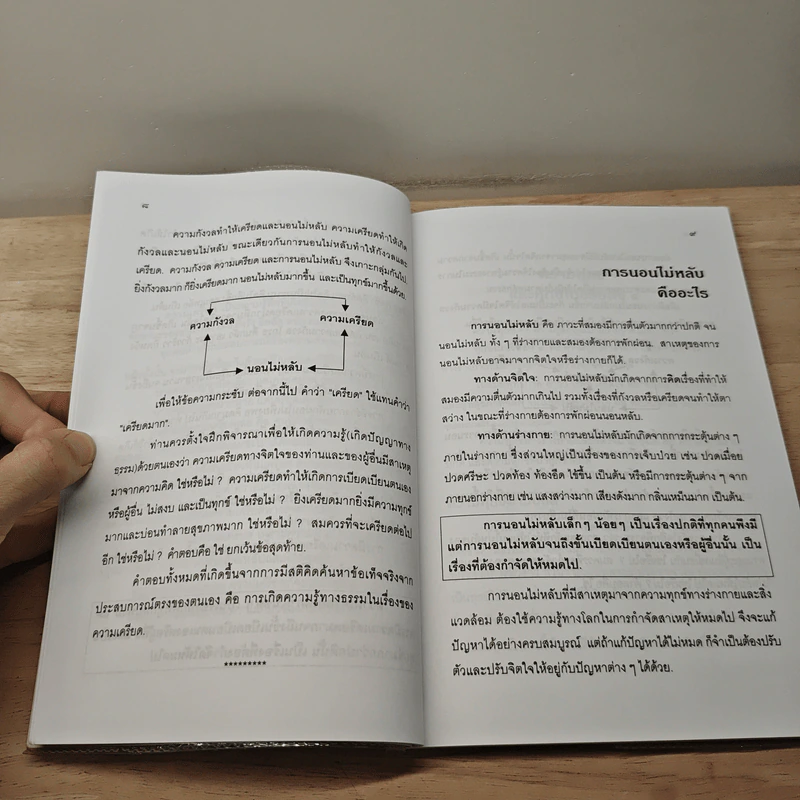 ๘
ความกังวลทำให้เครียดและนอนไม่หลับ ความเครียดทำให้เกิด
กังวลและนอนไม่หลับ ขณะเดียวกันการนอนไม่หลับทำให้กังวลและ
เครียด. ความกังวล ความเครียด และการนอนไม่หลับ จึงเกาะกลุ่มกันไป.
ยิ่งกังวลมาก ก็ยิ่งเครียดมาก นอนไม่หลับมากขึ้น และเป็นทุกข์มากขึ้นด้วย.
ความกังวล ความเครียด
นอนไม่หลับ
เพื่อให้ข้อความกระชับ ต่อจากนี้ไป คำว่า "เครียด" ใช้แทนคำว่า
"เครียดมาก".
ท่านควรตั้งใจฝึกพิจารณาเพื่อให้เกิดความรู้(เกิดปัญญาทาง
ธรรม)ด้วยตนเองว่า ความเครียดทางจิตใจของท่านและของผู้อื่นมีสาเหตุ
มาจากความคิด ใช่หรือไม่ ? ความเครียดทำให้เกิดการเบียดเบียนตนเอง
หรือผู้อื่น ไม่สงบ และเป็นทุกข์ ใช่หรือไม่ ? ยิ่งเครียดมากยิ่งมีความทุกข์
มากและบ่อนทำลายสุขภาพมาก ใช่หรือไม่ ? สมควรที่จะเครียดต่อไป
อีก ใช่หรือไม่ ? คำตอบคือ ใช่ ยกเว้นข้อสุดท้าย.
คำตอบทั้งหมดที่เกิดขึ้นจากการมีสติคิดค้นหาข้อเท็จจริงจาก
ประสบการณ์ตรงของตนเอง คือ การเกิดความรู้ทางธรรมในเรื่องของ
ความเครียด.
*********
๙
การนอนไม่หลับ
คืออะไร
การนอนไม่หลับ คือ ภาวะที่สมองมีการตื่นตัวมากกว่าปกติ จน
นอนไม่หลับ ทั้ง ๆ ที่ร่างกายและสมองต้องการพักผ่อน. สาเหตุของการ
นอนไม่หลับอาจมาจากจิตใจหรือร่างกายก็ได้.
ทางด้านจิตใจ: การนอนไม่หลับมักเกิดจากการคิดเรื่องที่ทำให้
สมองมีความตื่นตัวมากเกินไป รวมทั้งเรื่องที่กังวลหรือเครียดจนทำให้ตา
สว่าง ในขณะที่ร่างกายต้องการพักผ่อนนอนหลับ.
ทางด้านร่างกาย: การนอนไม่หลับมักเกิดจากการกระตุ้นต่าง ๆ
ภายในร่างกาย ซึ่งส่วนใหญ่เป็นเรื่องของการเจ็บป่วย เช่น ปวดเมื่อย
ปวดศรีษะ ปวดท้อง ท้องอืด ไข้ขึ้น เป็นต้น หรือมีการกระตุ้นต่าง ๆ จาก
ภายนอกร่างกาย เช่น แสงสว่างมาก เสียงดังมาก กลิ่นเหม็นมาก เป็นต้น.
การนอนไม่หลับเล็ก ๆ น้อย ๆ เป็นเรื่องปกติที่ทุกคนพึงมี
แต่การนอนไม่หลับจนถึงขั้นเบียดเบียนตนเองหรือผู้อื่นนั้น เป็น
เรื่องที่ต้องกำจัดให้หมดไป.
การนอนไม่หลับที่มีสาเหตุมาจากความทุกข์ทางร่างกายและสิ่ง
แวดล้อม ต้องใช้ความรู้ทางโลกในการกำจัดสาเหตุให้หมดไป จึงจะแก้
ปัญหาได้อย่างครบสมบูรณ์ แต่ถ้าแก้ปัญหาได้ไม่หมด ก็จำเป็นต้องปรับ
ตัวและปรับจิตใจให้อยู่กับปัญหาต่าง ๆ ได้ด้วย.